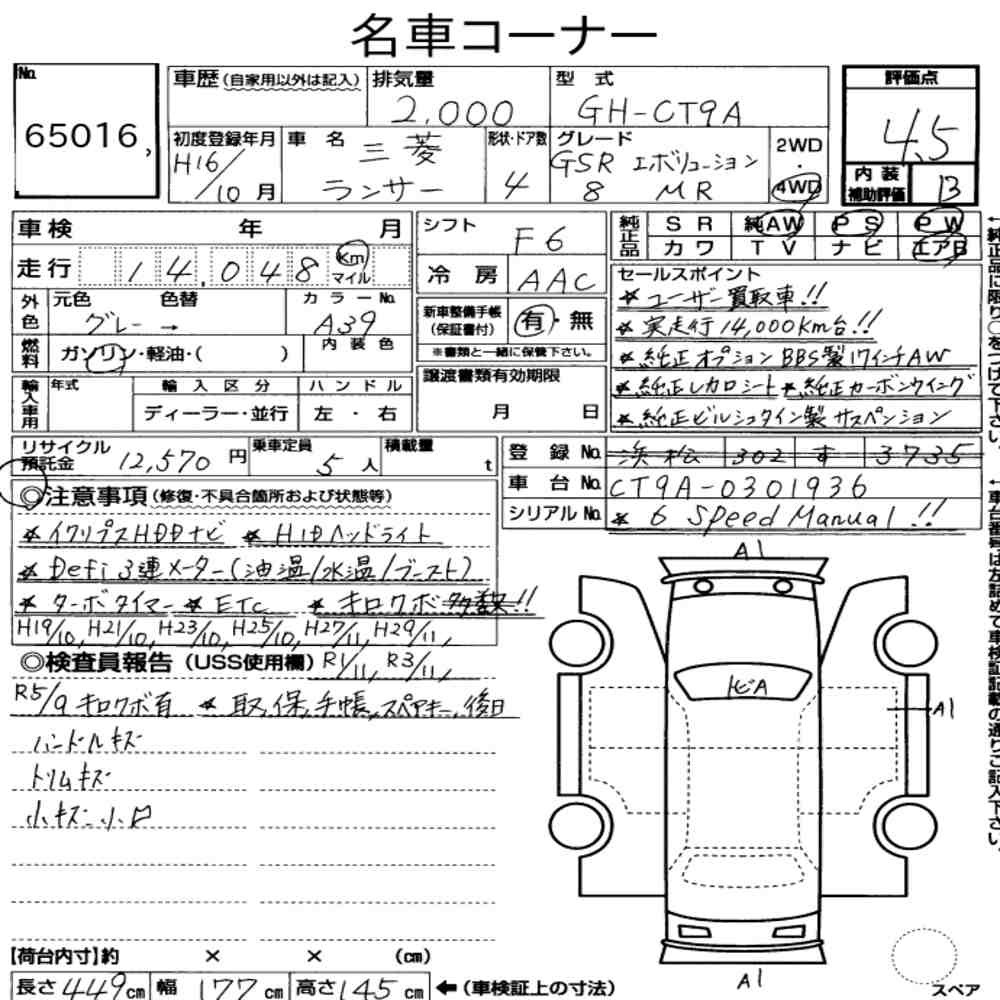 名車コーナー
No.
65016,
車歴(自家用以外は記入)
排気量
2,000
型 式
GH-CT9A
評価点
4.5
初度登録年月
H16/10 月
車 名
三菱
ランサー
形状・ドア数
4
グレード
GSR エボリューション
8 MR
2WD
・
4WD
内 装
補助評価
B
車検 年 月
走行 14,048 Km マイル
シフト
F6
冷 房
AAC
純正品
S R 純AW P S P W
カワ T V ナビ エアB
外色
元色 色替
グレー →
カラーNo.
A39
燃料
ガソリン・軽油・( )
内 装 色
新車整備手帳
(保証書付)
有・無
※書類と一緒に保管下さい。
セールスポイント
★ユーザー買取車!!
★実走行14,000Km台!!
★純正オプションBBS製17インチAW
★純正レカロシート ★純正カーボンウイング
★純正ビルシュタイン製サスペンション
輸入車用
年式
輸 入 区 分
ハ ン ド ル
ディーラー・並行
左 ・ 右
譲渡書類有効期限
月 日
リサイクル
預託金
12,570 円
乗車定員
5 人
積載量
t
登 録 No.
浜松 302 す 3735
車 台 No.
CT9A-0301936
シリアルNo.
★ 6 Speed Manual!!
◎注意事項(修復・不具合箇所および状態等)
★イクリプスHDDナビ ★HIDヘッドライト
★Defi3連メーター(油温/水温/ブースト)
★ターボタイマー ★ETC ★キロクボ多数!!
H19/10, H21/10, H23/10, H25/10, H27/11, H29/11,
◎検査員報告(USS使用欄) R1/11, R3/11,
R5/9キロクボ有 ★取,保,手帳,スペアキー,後日
ハンドルキズ
トリムキズ
小キズ 小凹
A1
トビA
A1
A1
【荷台内寸】約 × × (cm)
長さ449cm 幅177cm 高さ145cm ←(車検証上の寸法)
スペア
←純正品に限り○をつけて下さい。
←車台番号は左詰めで車検証記載の通りご記入下さい。